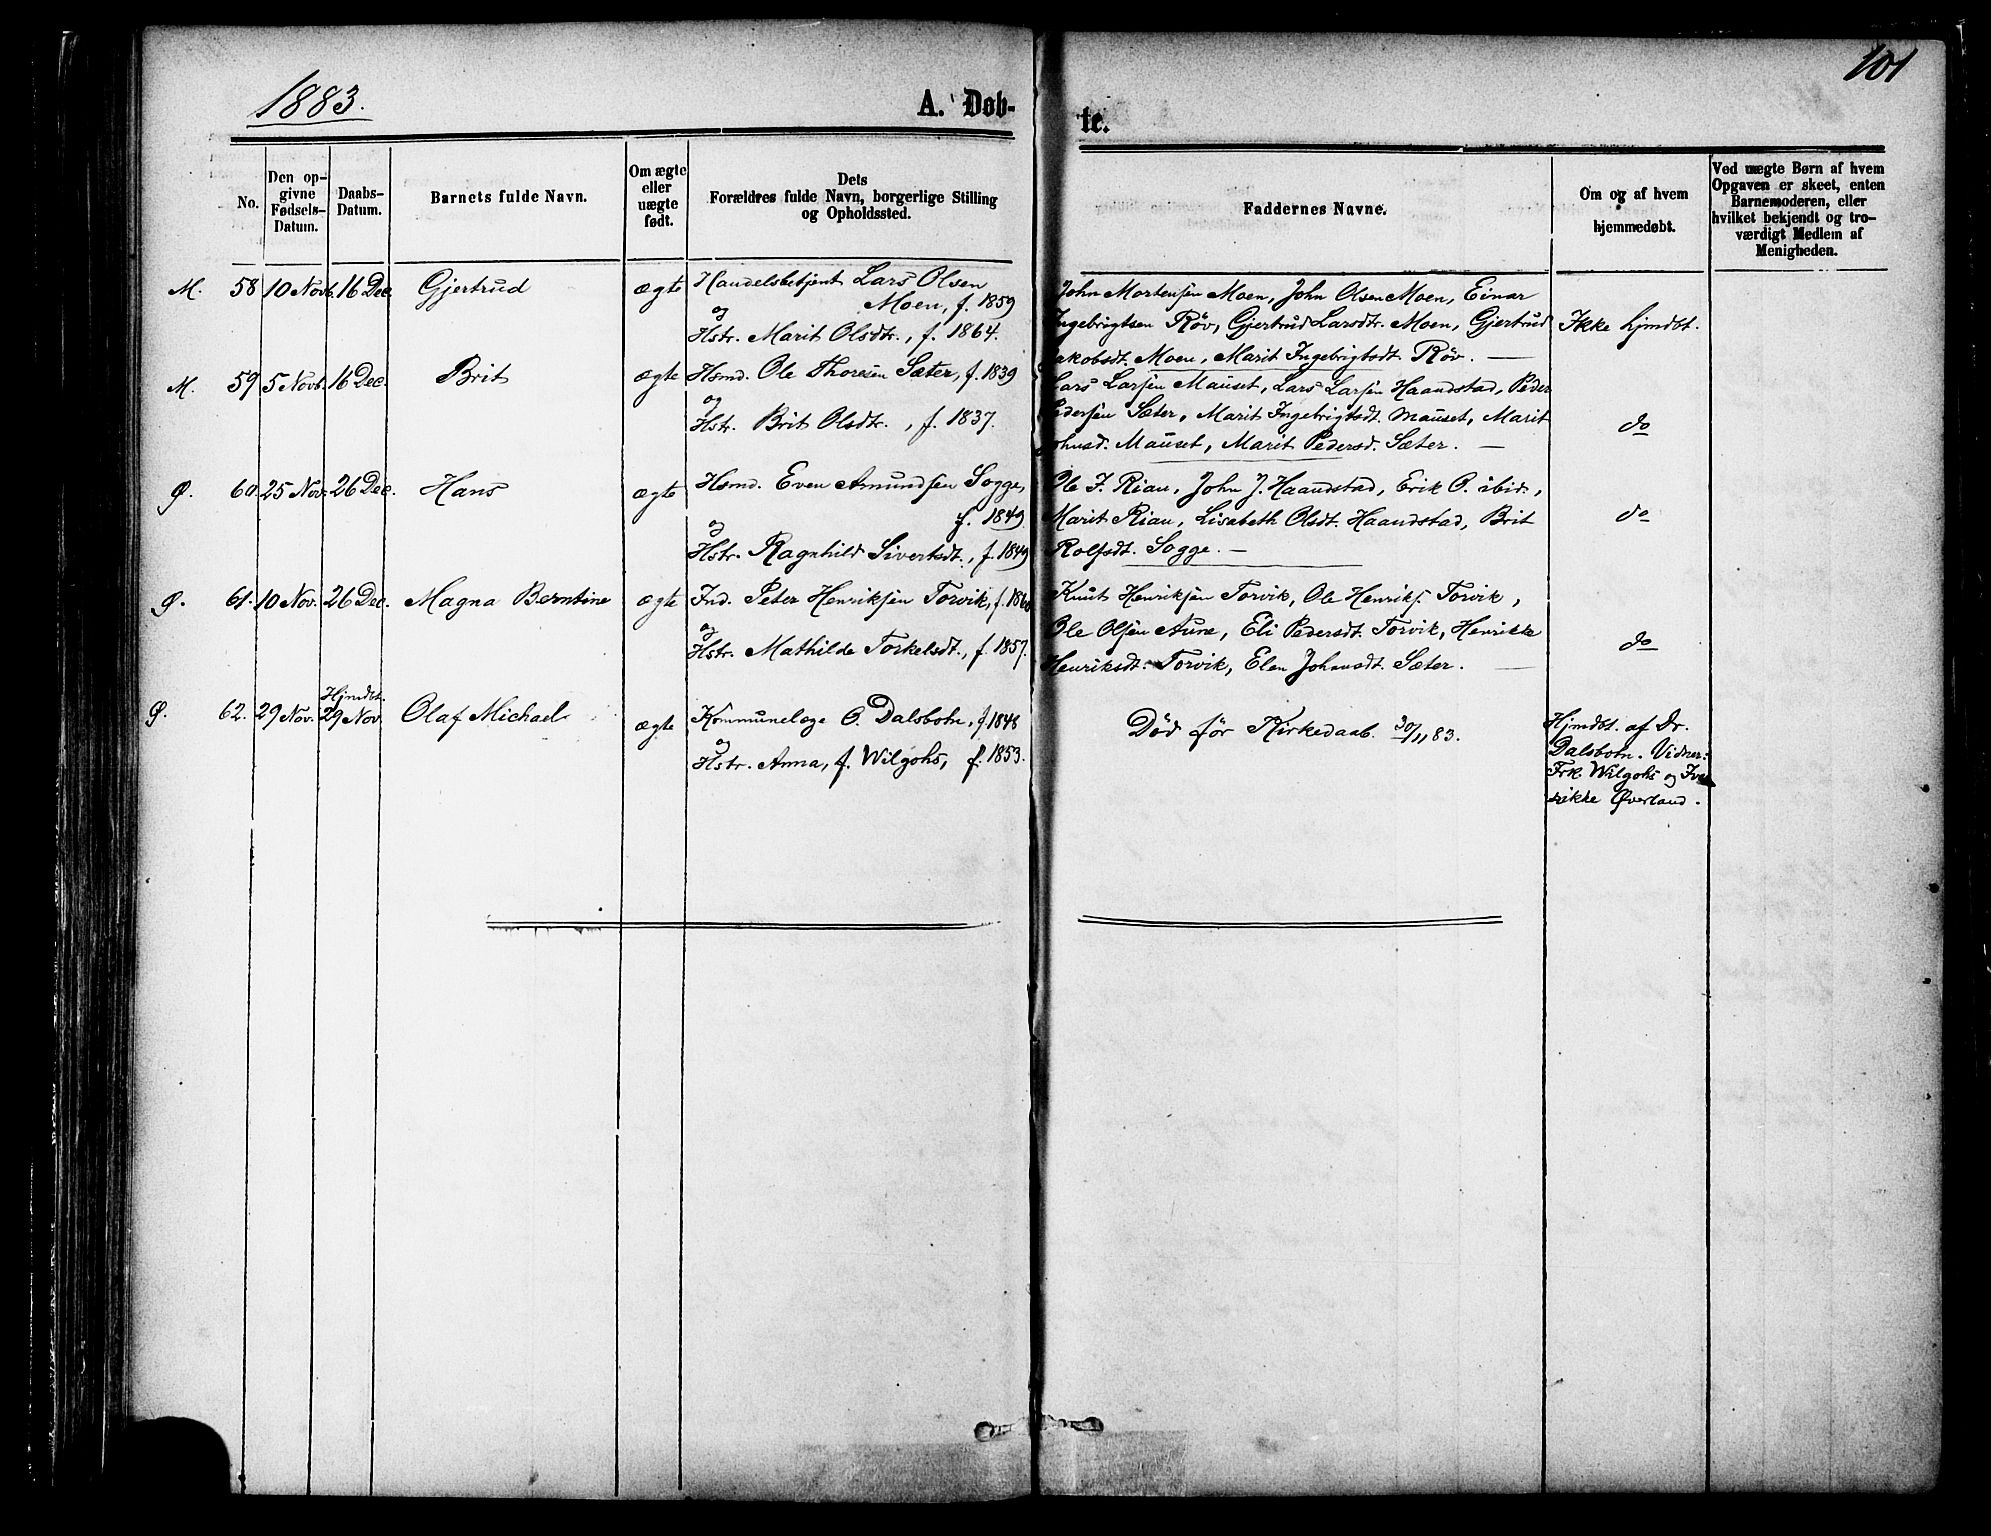 1883.
A. Døb-
te.
101
No.
Den op-
givne
Fødsels-
Datum.
Daabs-
Datum.
Barnets fulde Navn.
Om ægte
eller
uægte
født.
Dets
Forældres fulde Navn, borgerlige Stilling
og Opholdssted.
Faddernes Navne.
Om og af hvem
hjemmedøbt.
Ved uægte Børn af hvem
Opgaven er skeet, enten
Barnemoderen, eller
hvilket bekjendt og tro-
værdigt Medlem af
Menigheden.
M. 58 10 Novb. 16 Dec. Gjertrud ægte Handelsbetjent Lars Olsen
Moen, f. 1859
og
Hstr. Marit Olsdtr., f. 1864.
John Mortensen Moen, John Olsen Moen, Einar
Ingebrigtsen Röv, Gjertrud Larsdtr. Moen, Gjertrud
Jakobsdt. Moen, Marit Ingebrigtsdt. Röv. —
Ikke hjmdbt.
M. 59 5 Novb. 16 Dec. Brit ægte Hsmd. Ole Thoresen Sæter, f. 1839
og
Hstr. Brit Olsdtr., f. 1837.
Lars Larsen Mauset, Lars Larsen Haandstad, Peder
Pedersen Sæter, Marit Ingebrigtsdt. Mauset, Marit
Johnsd. Mauset, Marit Pedersd. Sæter. —
do
Ø. 60. 25 Nov. 26 Dec. Hans ægte Hsmd. Even Amundsen Sogge,
f. 1849
og
Hstr. Ragnhild Sivertsdt., f. 1849
Ole I. Rian, John J. Haandstad, Erik O. ibid.,
Marit Rian, Lisabeth Olsdt. Haandstad, Brit
Rolfsdt. Sogge. —
do
Ø. 61. 10 Nov. 26 Dec. Magna Berntine ægte Ind. Peter Henriksen Torvik, f. 1860
og
Hstr. Mathilde Torkelsdt., f. 1857.
Knut Henriksen Torvik, Ole Henriks. Torvik,
Ole Olsen Aune, Eli Pedersdt. Torvik, Henrikke
Henriksdt. Torvik, Elen Johnsdt. Sæter. —
do
Ø. 62. 29 Nov. Hjmdbt. 29 Nov. Olaf Michael ægte Kommunelæge O. Dalsbotn, f. 1848
og
Hstr. Anna, f. Wilgohs, f. 1853.
Död för Kirkedaab. 30/11 83.
Hjmdbt. af Dr.
Dalsbotn. Vidner:
Frk. Wilgohs og
Øverland.